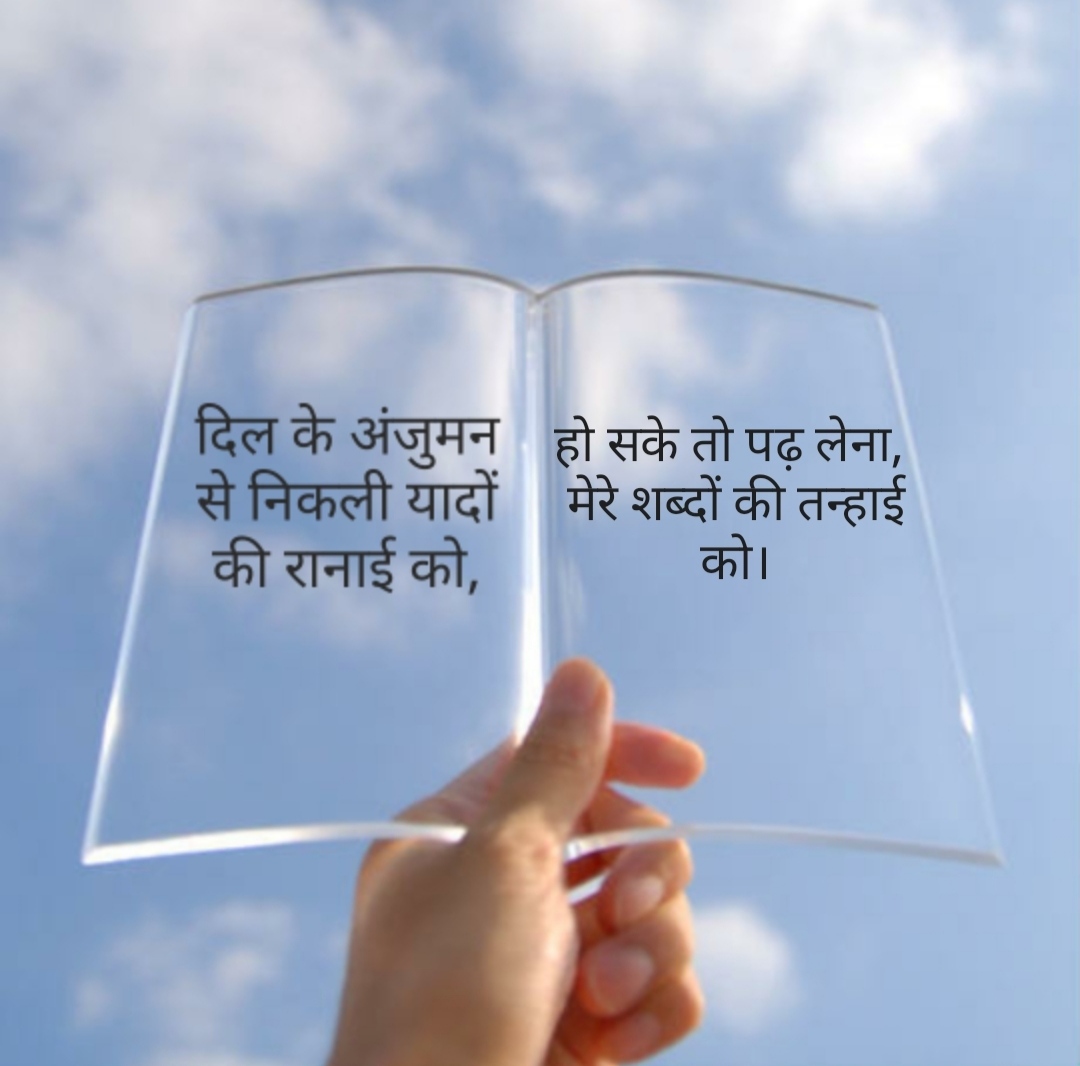 दिल के अंजुमन
से निकली यादों
की रानाई को,
हो सके तो पढ़ लेना,
मेरे शब्दों की तन्हाई
को।